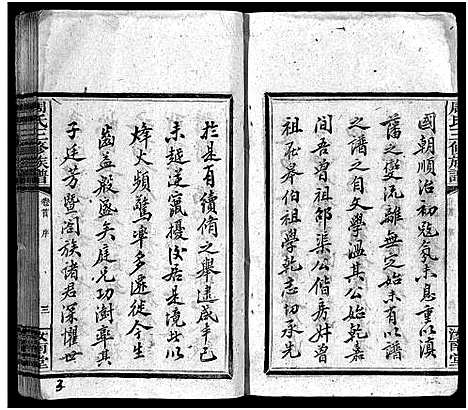 國朝順治初寇氛未息重以滇
藩之變流離無定始未有以譜
之譜之自文學溫其公始乾嘉
間吾曾祖邰渠公偕房叔曾
祖殿舉伯祖學乾志切承先
於是有續脩之舉逮咸丰己
未趙逆竄擾後居是境比以
烽火頻驚率多遷徙今生
齒益般盛矣庭兄功澍率其
子廷芳暨闔族諸君深懼世
周氏三修族譜
卷首 序
三
汝南堂